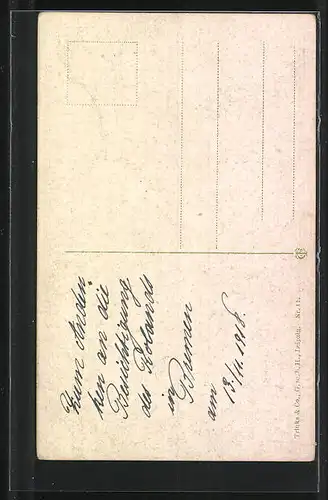 Zum Andén
ken an die
Besichtigung
des Rolands
in
Bremen
am
13/11 1918.
Trinks & Co., G. m. b. H., Leipzig. Nr. 11.